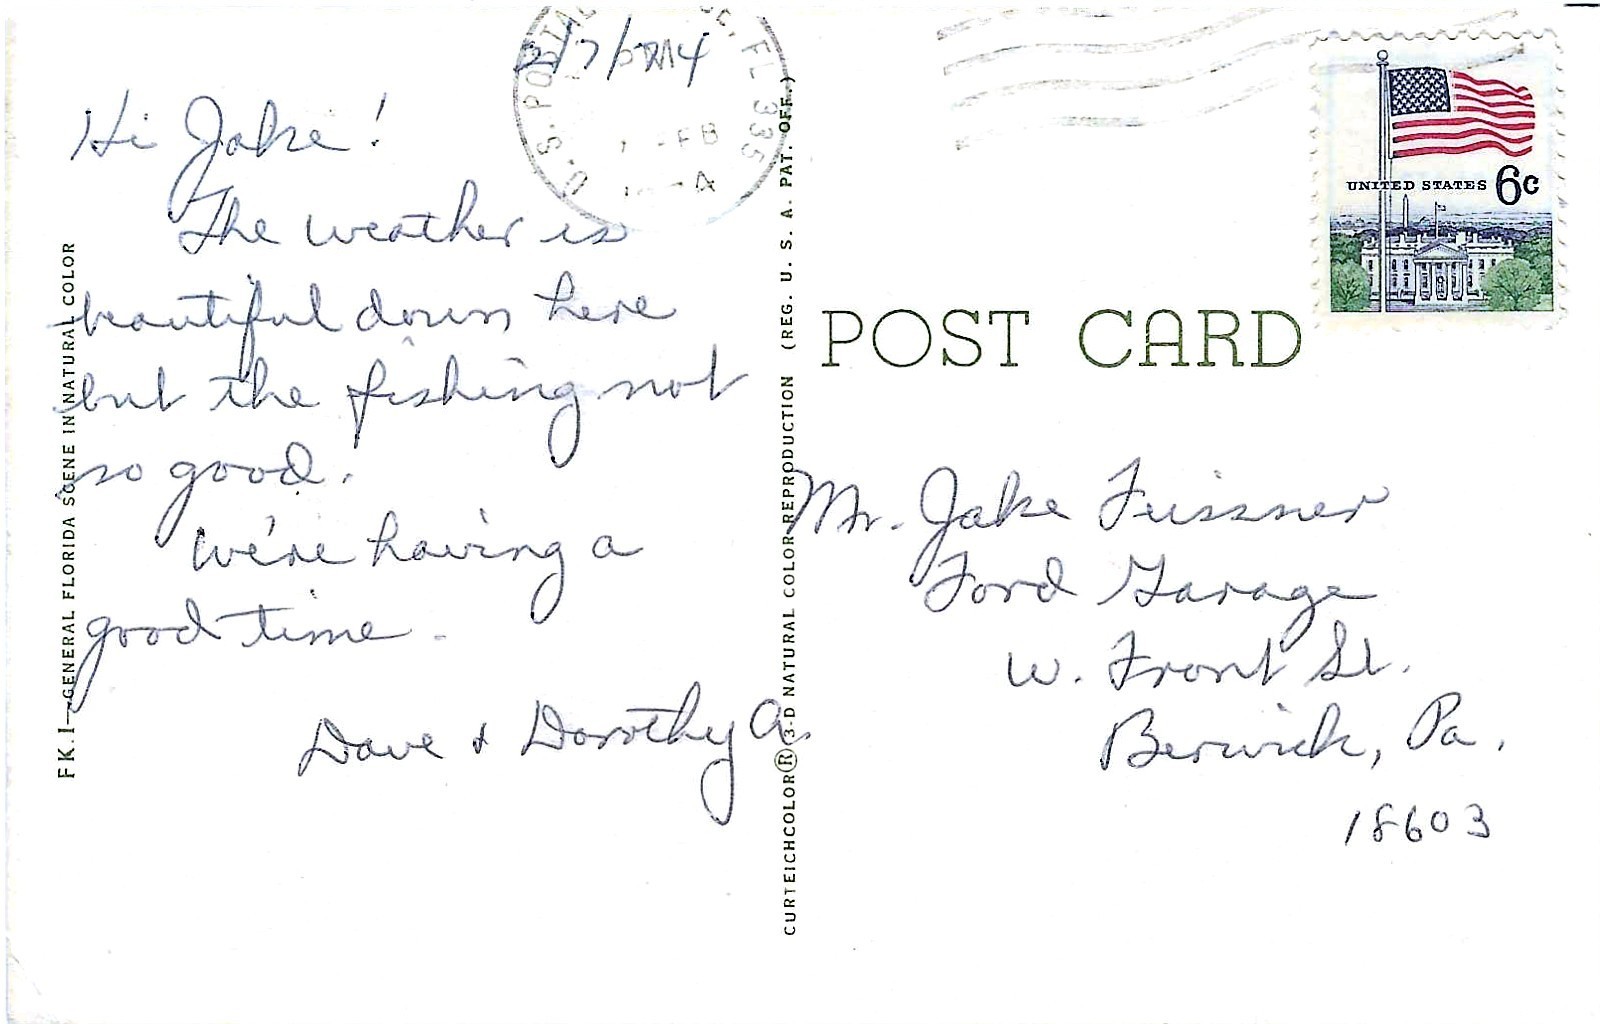 Hi Jake!
The weather is
beautiful down here
but the fishing not
so good.
We're having a
good time.
Dave & Dorothy A.
FK.1—GENERAL FLORIDA SCENE IN NATURAL COLOR
U.S. POSTAL FL 335
FB
CURTEICHCOLOR® 3-D NATURAL COLOR REPRODUCTION (REG. U. S. A. PAT. OFF.)
UNITED STATES 6c
POST CARD
Mr. Jake Feissner
Ford Garage
W. Front St.
Berwick, Pa.
18603